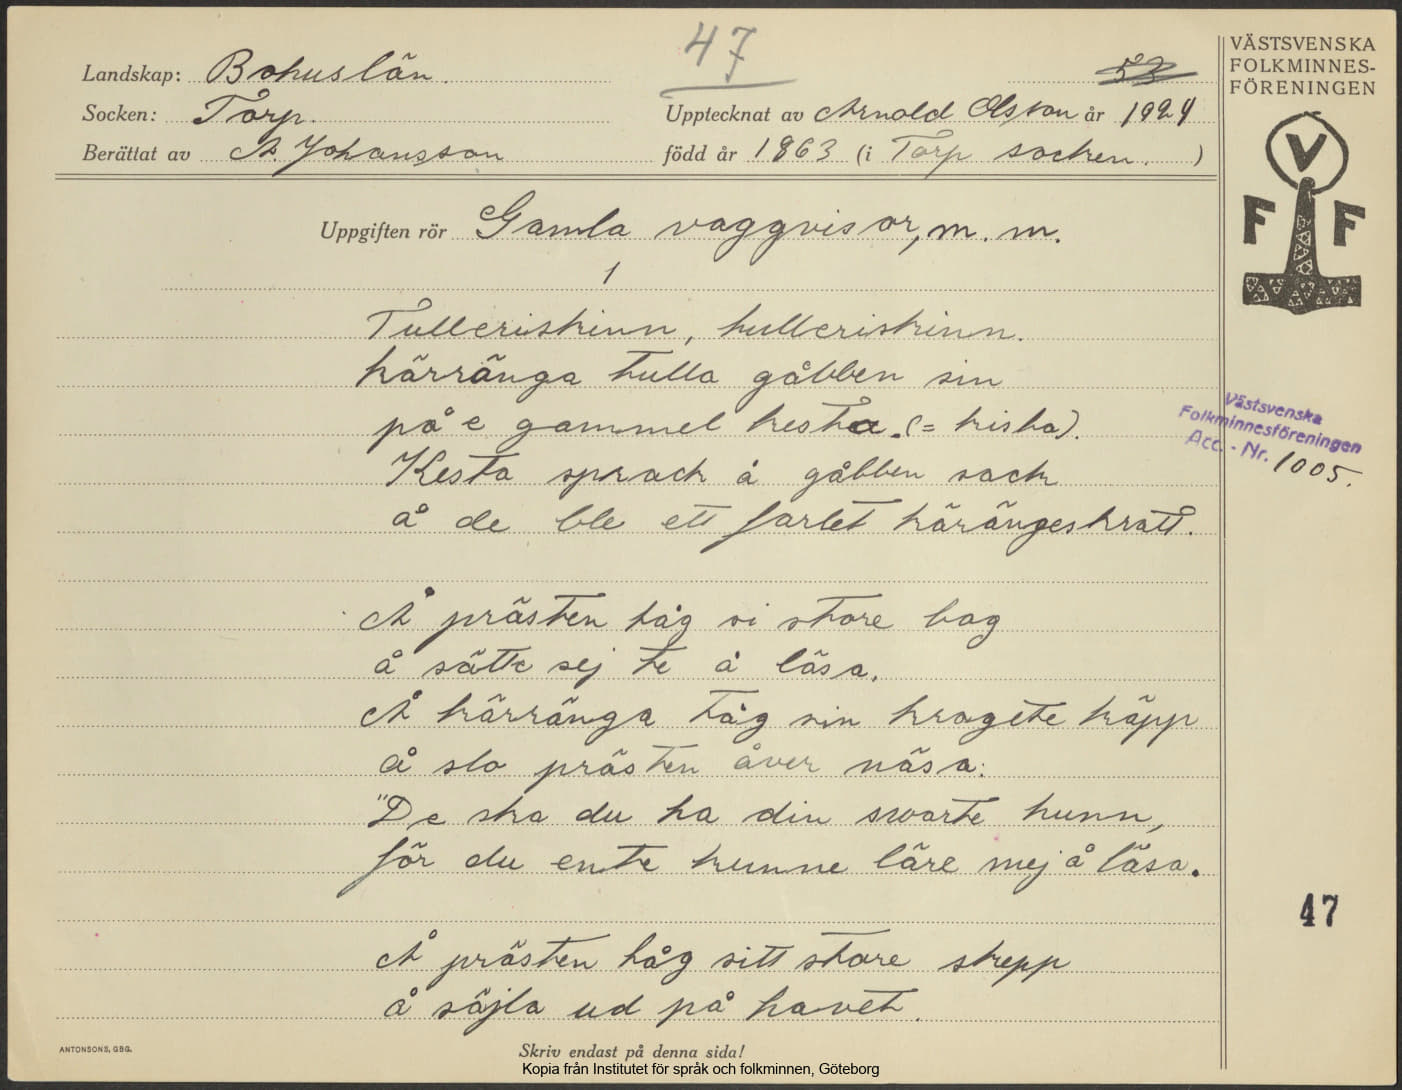 47
53
Landskap: Bohuslän.
Socken: Torp.
Upptecknat av Arnold Olsson år 1924
Berättat av A. Johansson född år 1863 (i Torp socken.)
VÄSTSVENSKA
FOLKMINNES-
FÖRENINGEN
V
F F
Uppgiften rör Gamla vaggvisor, m. m.
1
Tulleriskinn, kulleriskinn.
kärränga tulla gåbben sin
på e gammel kesta. (= kista).
Kesta sprack å gåbben sack
å de ble ett farlet kärängeskratt.
Västsvenska
Folkminnesföreningen
Acc. - Nr. 1005.
Å prästen tåg si store bag
å sätte sej te å läsa.
Å kärränga tåg sin krogete käpp
å slo prästen åver näsa:
"De ska du ha din svarte hunn,
för du ente kunne läre mej å läsa.
47
Å prästen tåg sitt store skepp
å säjla ud på havet.
ANTONSONS, GBG.
Skriv endast på denna sida!
Kopia från Institutet för språk och folkminnen, Göteborg